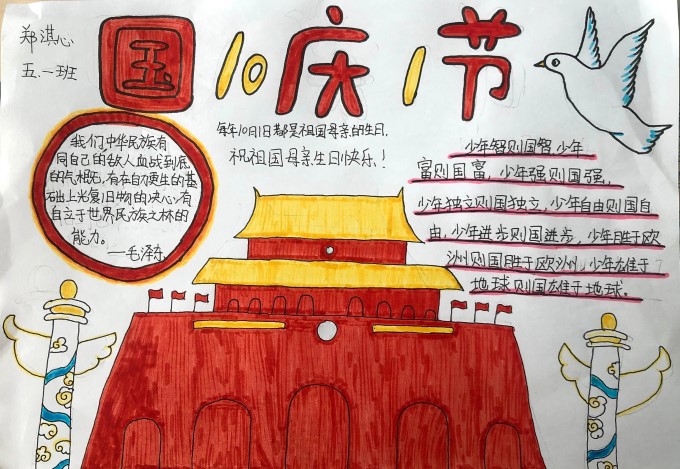 郑淇心
五.一班
国10庆1节
每年10月1日都是祖国母亲的生日.
祝祖国母亲生日快乐!
我们中华民族有
同自己的敌人血战到底
的气概,有在自力更生的基
础上光复旧物的决心,有
自立于世界民族之林的
能力。
——毛泽东
少年智则国智,少年
富则国富,少年强则国强,
少年独立则国独立,少年自由则国自
由,少年进步则国进步,少年胜于欧
洲则国胜于欧洲,少年雄于
地球则国雄于地球。